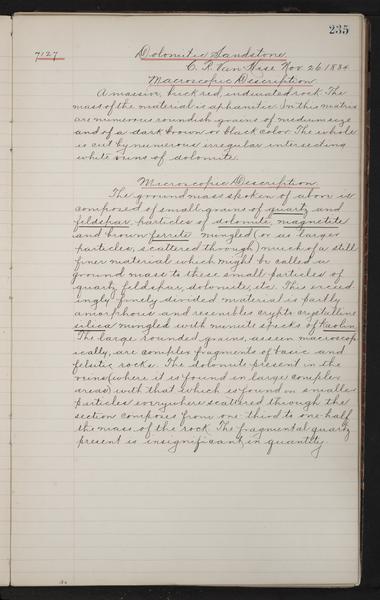 235
7127 Dolomitic Sandstone.
C. R. Van Hise Nov. 26 1884
Macroscopic Description.
A massive, brick red, indurated rock. The
mass of the material is aphanitic. In this matrix
are numerous roundish grains of medium size
and of a dark brown or black color. The whole
is cut by numerous irregular intersecting
white veins of dolomite.
Microscopic Description.
The ground mass spoken of above is
composed of small grains of quartz and
feldspar, particles of dolomite, magnetite
and brown ferrite mingled (or as larger
particles, scattered through) much of a still
finer material which might be called a
ground mass to these small particles of
quartz, feldspar, dolomite, etc. This exceed
ingly finely divided material is partly
amorphous and resembles crypto crystalline
silica mingled with minute specks of Kaolin.
The large rounded grains, as seen macroscop
ically, are complex fragments of basic and
felsitic rocks. The dolomite present in the
veins (where it is found in large complex
areas) with that which is found in smaller
particles everywhere scattered through the
section composes from one third to one half
the mass of the rock. The fragmental quartz
present is insignificant in quantity.